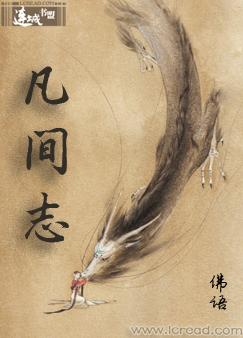 WWW.LCREAD.COM
连城书盟
凡间志
佛语
www.lcread.com